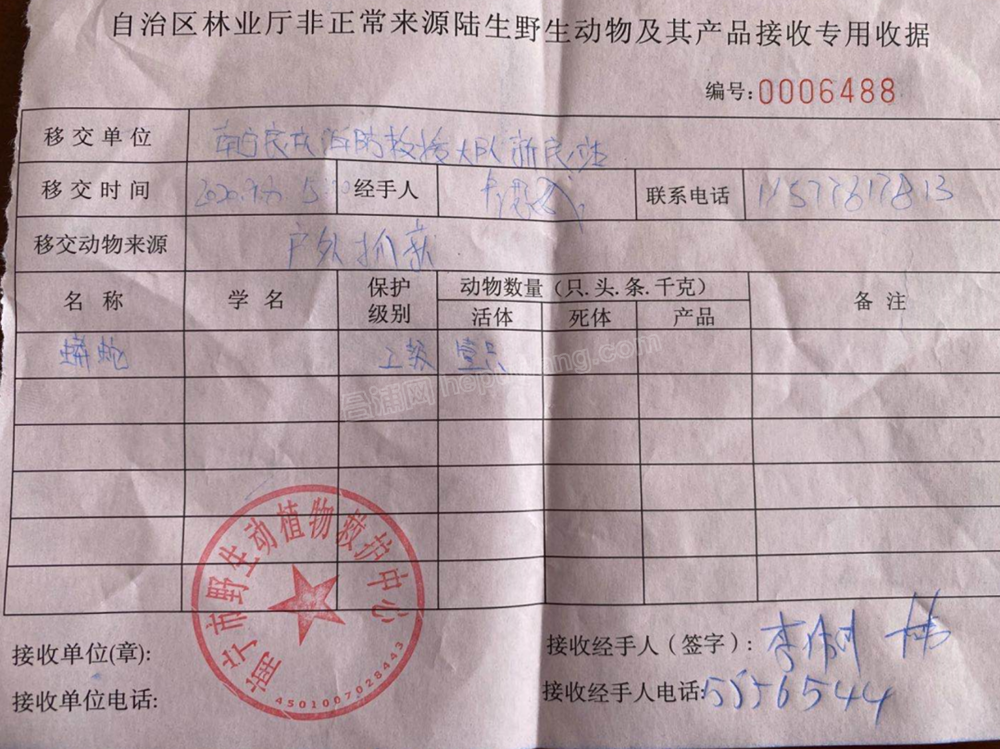 自治区林业厅非正常来源陆生野生动物及其产品接收专用收据
编号:0006488
移交单位 南宁 消防救援大队新民站
移交时间 2020 经手人 联系电话
移交动物来源 户外抓获
名称 学名 保护级别 动物数量(只.头.条.千克) 备注
活体 死体 产品
蟒蛇 工级 壹只
昌浦网hepuchang.com
南宁市野生动植物救护中心
4501007028443
接收单位(章): 接收经手人(签字): 李
接收单位电话: 接收经手人电话:5556544